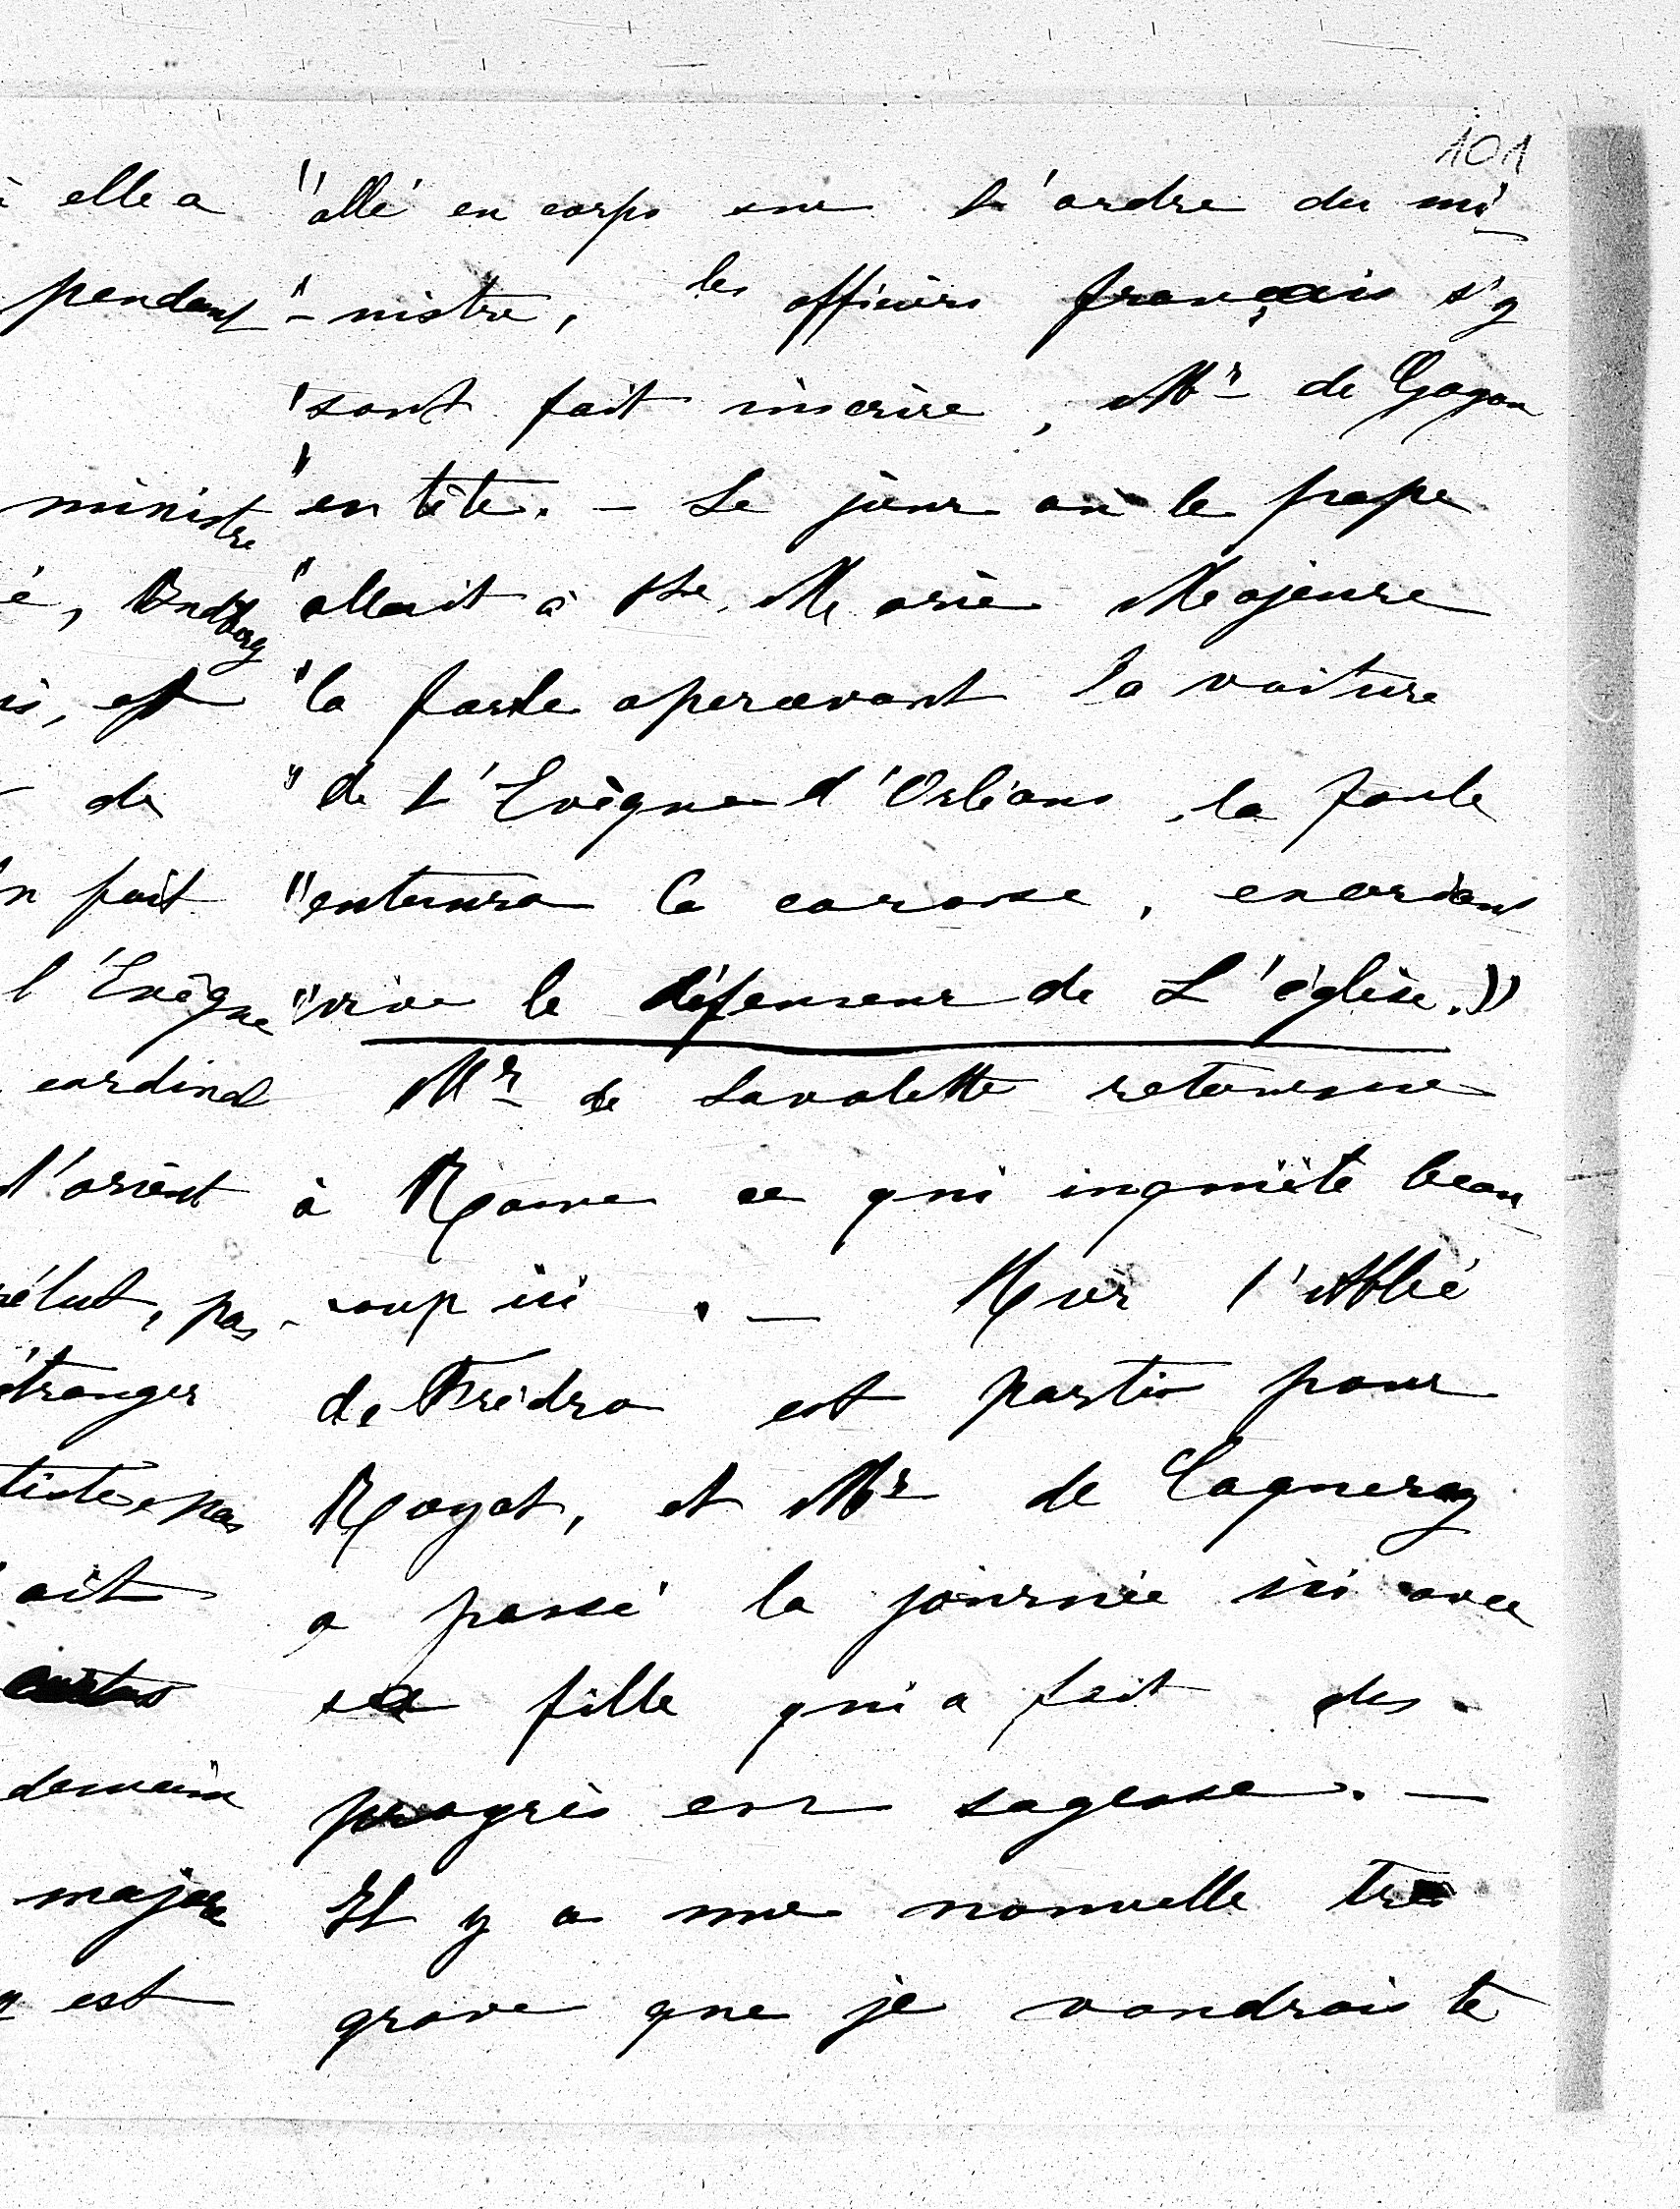 101
elle a
pendant
ministre
é, Andt
borg
is, est
de
n fait
l'Evêque
cardinal
d'orient
pas
étranger
pas
ait
demain
majore
est
"allé en corps sur L'ordre du mi
"-nistre, les officiers français s'y
"sont fait inscrire, Mr de Goyon
"en tête. - Le jour où le pape
"allait à Ste. Marie Majeure
"la foule apercevant la voiture
"de L'Evêque d'Orléans, la foule
"entoura la carosse, en criant
"vive le défenseur de L'église.»
Mr de Lavalette retourne
à Rome ce qui inquiète beau
-coup ici. - Hier l'Abbé
de Frédro est parti pour
Royat, et Mr de Cagneray
a passé la journée ici avec
sa fille qui a fait des
progrès en sagesse. -
Il y a une nouvelle très
grave que je voudrais te